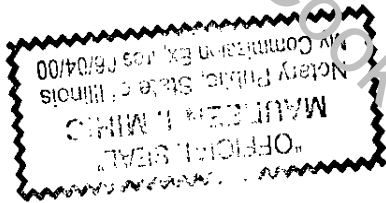 "OFFICIAL SEAL"
MAUREEN
Notary Public, State of Illinois
My Commission Expires 06/04/00
Coo